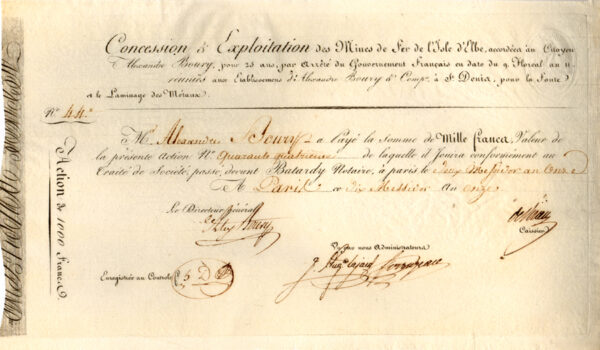 Concession & Exploitation des Mines de Fer de l'Isle d'Elbe, accordée au Citoyen
Alexandre Boury, pour 25 ans, par Arrêté du Gouvernement Français en date du 9 Floreal an 11
réunies aux Etablissemens d'Alexandre Boury & Comp.e à St Denis, pour la Fonte
et le Laminage des Métaux.
No 44.
Mr Alexandre Boury a Payé la Somme de Mille francs, Valeur de
la présente Action No Quarante quatrieme de laquelle il Jouira conformément au
Traité de Société passé, devant Batardy Notaire, à paris le Deux Messidor an Onze
A Paris ce dix Messidor An Onze
Le Directeur Général
Alex Boury
Caissier
Vu par nous Administrateurs
Enregistrée au Controle
Action de 1000 Francs.